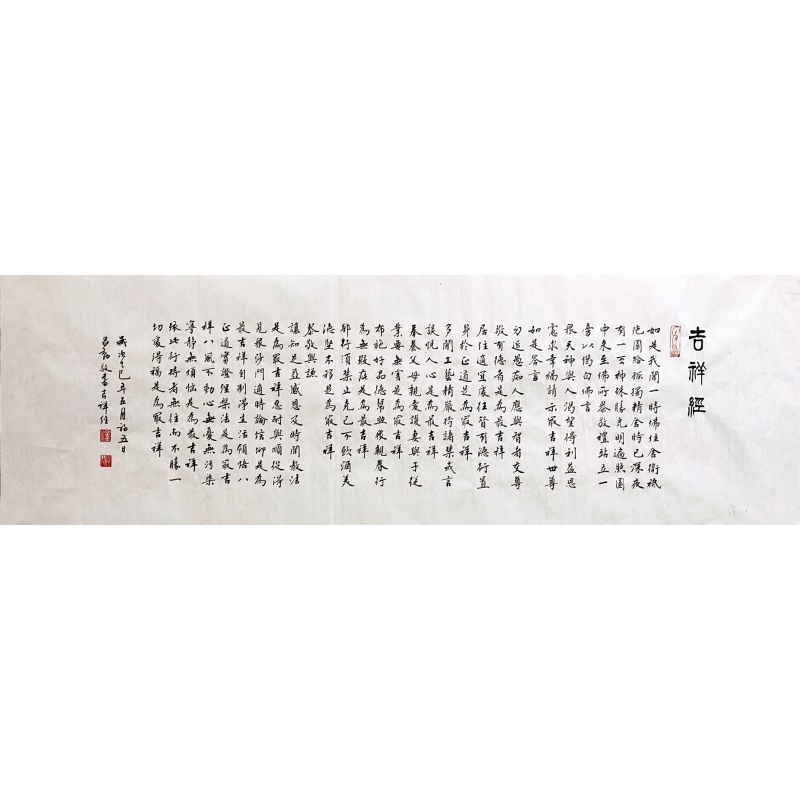 吉祥經
如是我聞一時佛住舍衛祇
陀園給孤獨精舍時已深夜
有一天神殊勝光明遍照園
中來至佛所恭敬禮站立一
旁以偈白佛言
眾天神與人渴望得利益思
慮求幸福請示最吉祥世尊
如是答言
勿近愚痴人應與智者交尊
敬有德者是為最吉祥
居住適宜處往昔有德行置
身於正道是為最吉祥
多聞工藝精嚴行諸禁戒言
談悅人心是為最吉祥
奉養父母親愛護妻與子從
業要無害是為最吉祥
布施好品德幫助眾親眷行
為無瑕疵是為最吉祥
邪行須禁止克己不飲酒美
德堅不移是為最吉祥
恭敬與謙
讓知足並感恩及時聞教法
是為最吉祥忍耐與順從得
見眾沙門適時論信仰是為
最吉祥自制淨生活領悟八
正道實證涅槃法是為最吉
祥八風不動心無憂無污染
寧靜無煩惱是為最吉祥
依此行持者無往而不勝一
切處得福是為最吉祥
五月初五日
敬書吉祥經